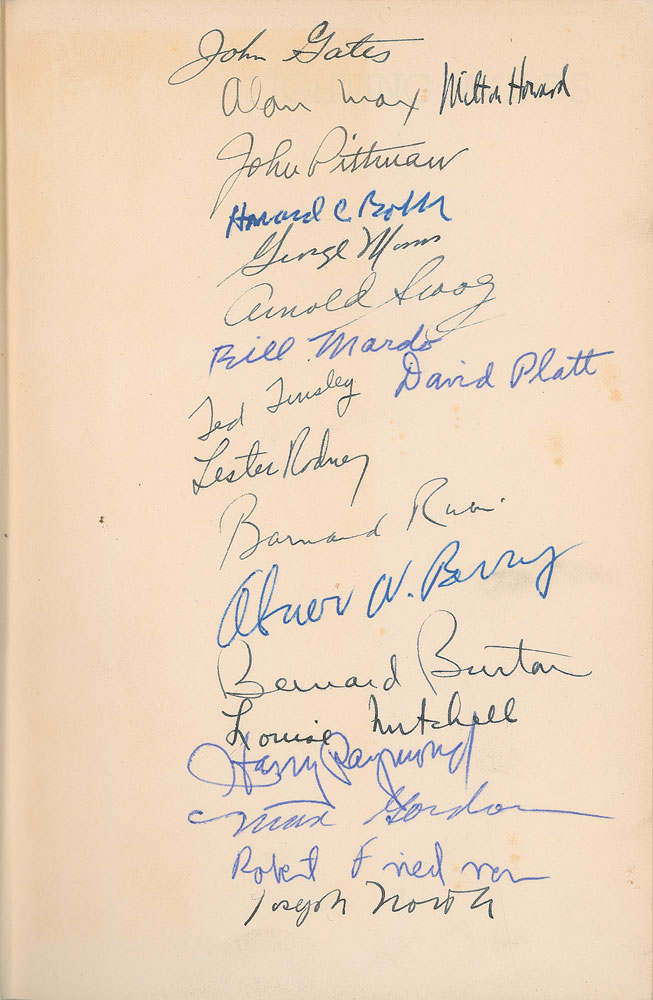 John Gates
Alan Max Milton Howard
John Pittman
Howard C Boldt
George Morris
Arnold Sroog
Bill Mardo
David Platt
Ted Tinsley
Lester Rodney
Barnard Rubin
Abner W. Berry
Bernard Burton
Louise Mitchell
Harry Raymond
Max Gordon
Robert Friedman
Joseph North